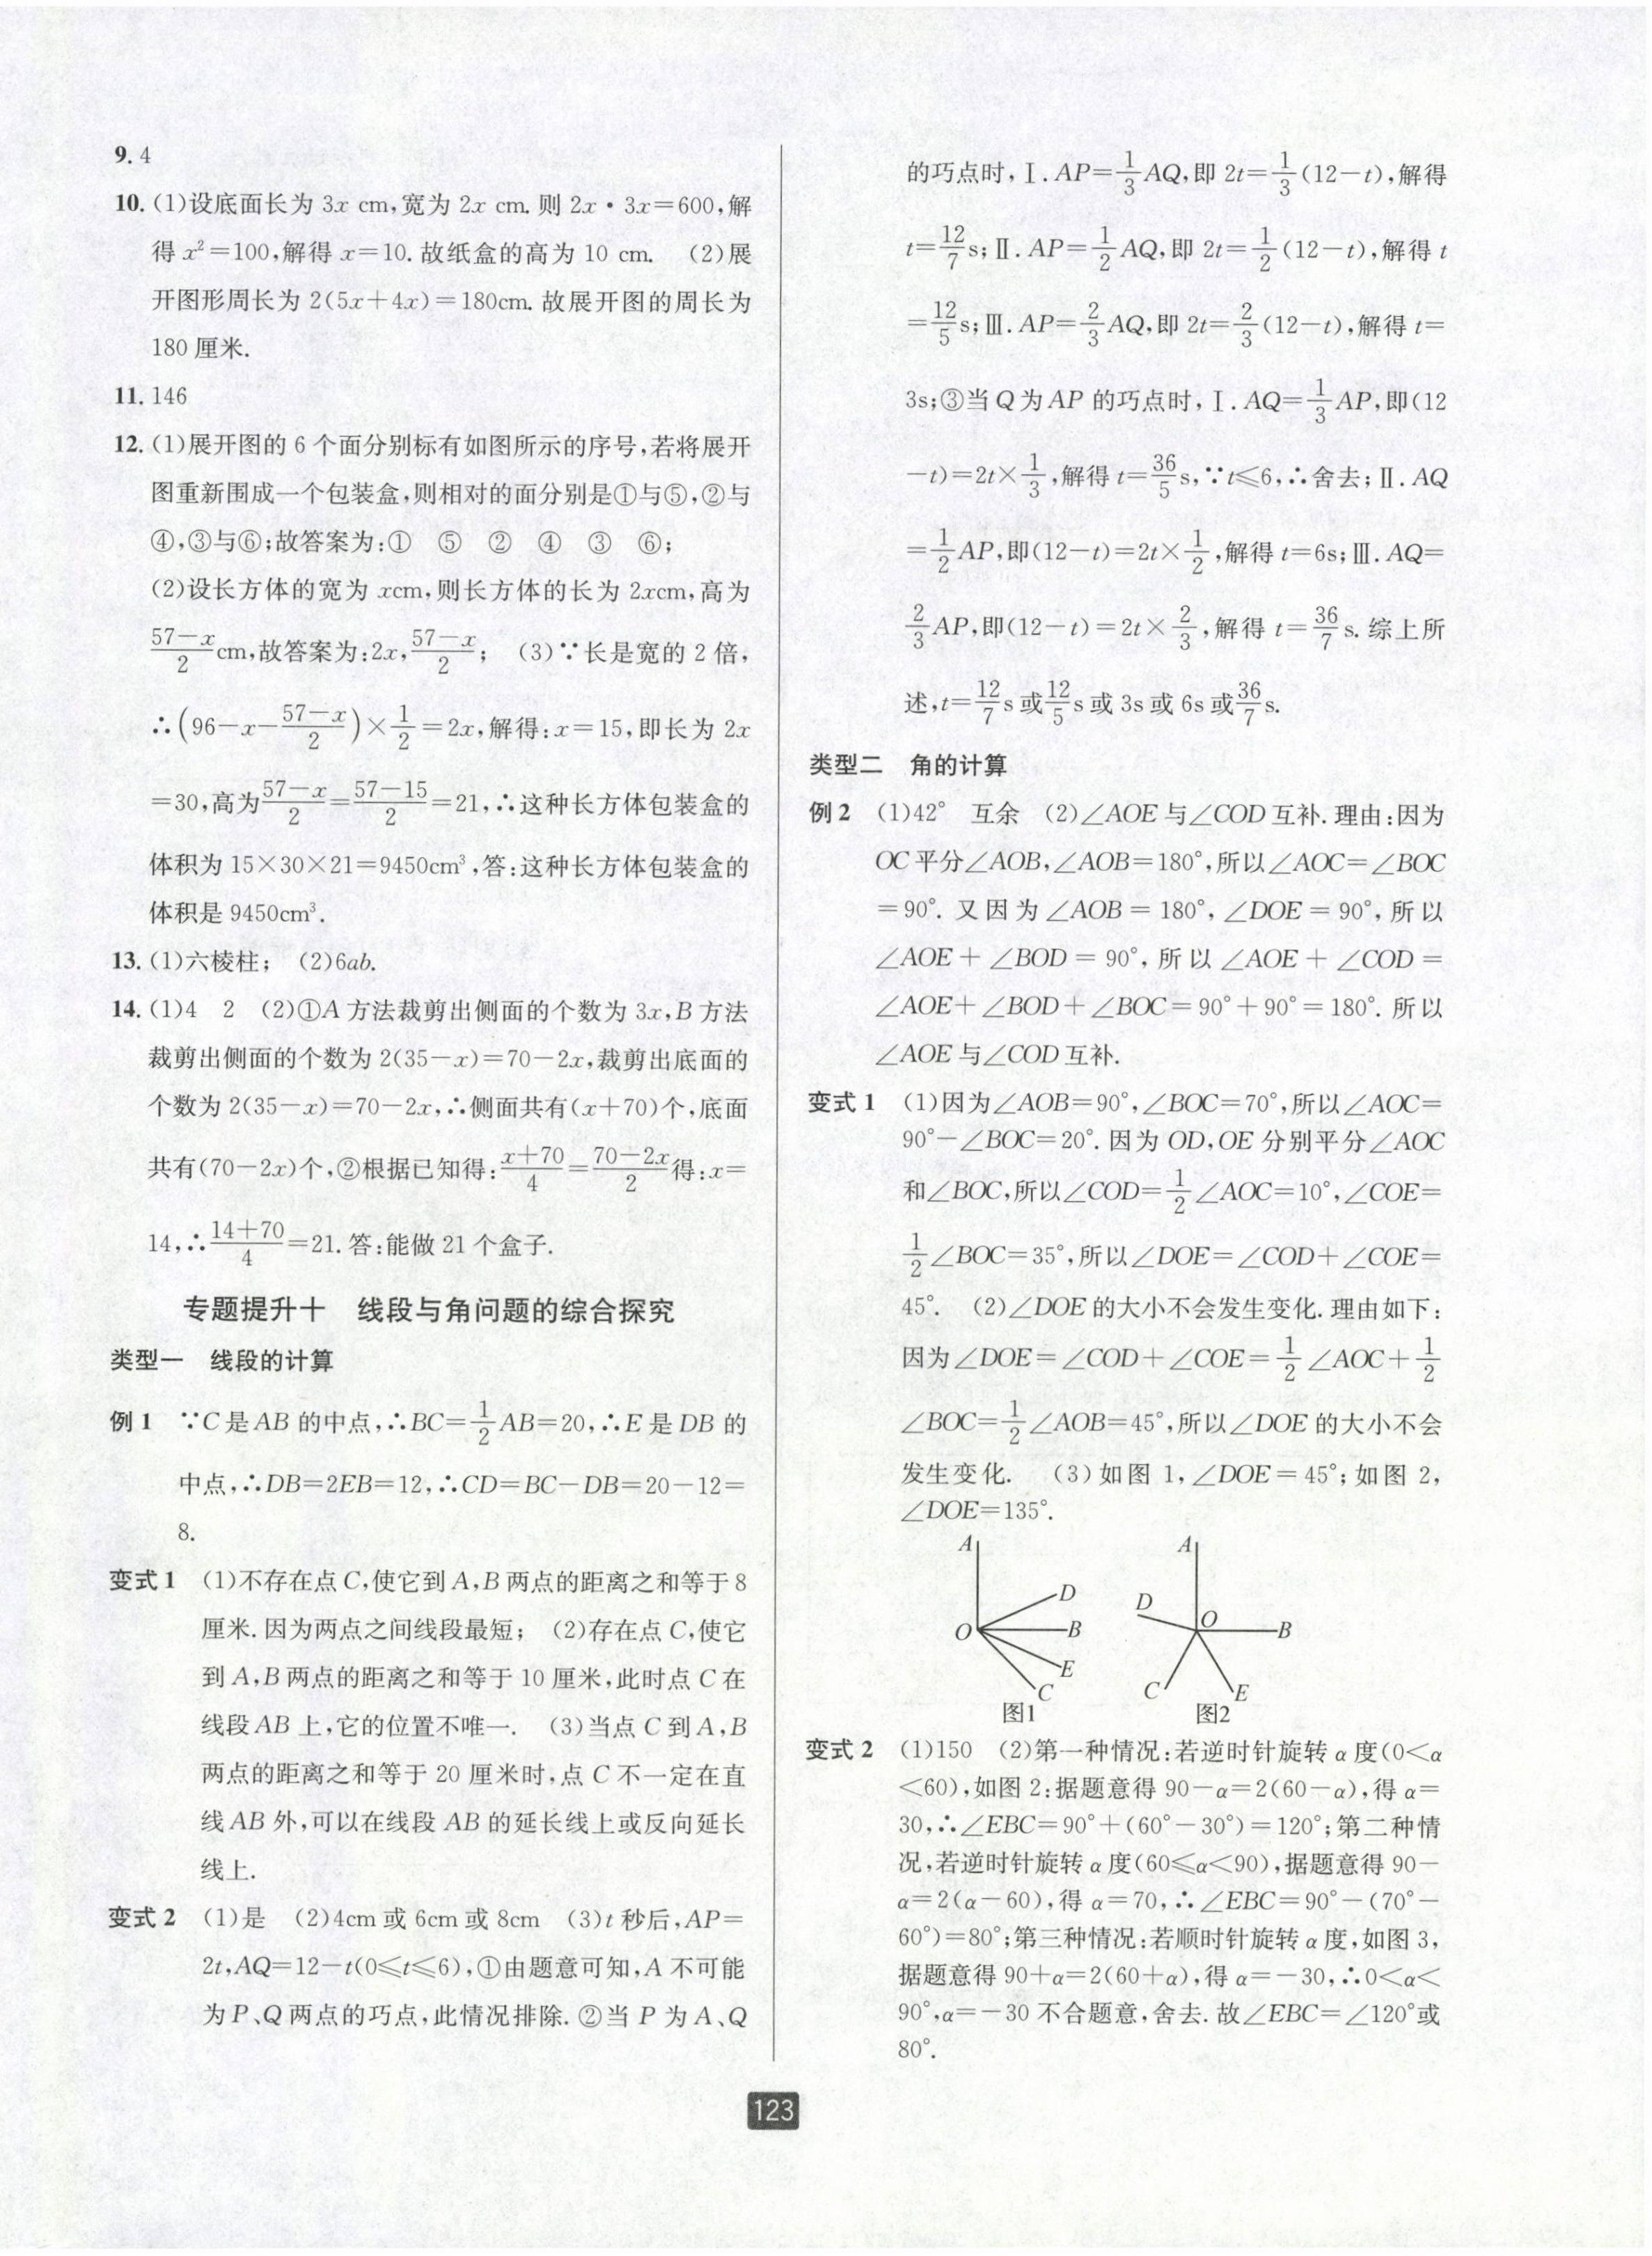 9. 4
10. (1)设底面长为 3x cm,宽为 2x cm. 则 2x·3x=600,解
得 x²=100,解得 x=10. 故纸盒的高为 10 cm. (2)展
开图形周长为 2(5x+4x)=180cm. 故展开图的周长为
180 厘米.
11. 146
12. (1)展开图的 6 个面分别标有如图所示的序号,若将展开
图重新围成一个包装盒,则相对的面分别是①与⑤,②与
④,③与⑥;故答案为:① ⑤ ② ④ ③ ⑥;
(2)设长方体的宽为 xcm,则长方体的长为 2xcm,高为
\frac{57-x}{2}cm,故答案为:2x,\frac{57-x}{2}; (3)∵长是宽的 2 倍,
∴(96-x-\frac{57-x}{2})×\frac{1}{2}=2x,解得:x=15,即长为 2x
=30,高为\frac{57-x}{2}=\frac{57-15}{2}=21,∴这种长方体包装盒的
体积为 15×30×21=9450cm³,答:这种长方体包装盒的
体积是 9450cm³.
13. (1)六棱柱; (2)6ab.
14. (1)4 2 (2)①A 方法裁剪出侧面的个数为 3x,B 方法
裁剪出侧面的个数为 2(35-x)=70-2x,裁剪出底面的
个数为 2(35-x)=70-2x,∴侧面共有(x+70)个,底面
共有(70-2x)个,②根据已知得:\frac{x+70}{4}=\frac{70-2x}{2}得:x=
14,∴\frac{14+70}{4}=21. 答:能做 21 个盒子.
专题提升十 线段与角问题的综合探究
类型一 线段的计算
例 1 ∵C 是 AB 的中点,∴BC=\frac{1}{2}AB=20,∴E 是 DB 的
中点,∴DB=2EB=12,∴CD=BC-DB=20-12=
8.
变式 1 (1)不存在点 C,使它到 A,B 两点的距离之和等于 8
厘米. 因为两点之间线段最短; (2)存在点 C,使它
到 A,B 两点的距离之和等于 10 厘米,此时点 C 在
线段 AB 上,它的位置不唯一. (3)当点 C 到 A,B
两点的距离之和等于 20 厘米时,点 C 不一定在直
线 AB 外,可以在线段 AB 的延长线上或反向延长
线上.
变式 2 (1)是 (2)4cm 或 6cm 或 8cm (3)t 秒后,AP=
2t,AQ=12-t(0≤t≤6),①由题意可知,A 不可能
为 P、Q 两点的巧点,此情况排除. ②当 P 为 A、Q
的巧点时,Ⅰ. AP=\frac{1}{3}AQ,即 2t=\frac{1}{3}(12-t),解得
t=\frac{12}{7}s;Ⅱ. AP=\frac{1}{2}AQ,即 2t=\frac{1}{2}(12-t),解得 t
=\frac{12}{5}s;Ⅲ. AP=\frac{2}{3}AQ,即 2t=\frac{2}{3}(12-t),解得 t=
3s;③当 Q 为 AP 的巧点时,Ⅰ. AQ=\frac{1}{3}AP,即(12
-t)=2t×\frac{1}{3},解得 t=\frac{36}{5}s,∵t≤6,∴舍去;Ⅱ. AQ
=\frac{1}{2}AP,即(12-t)=2t×\frac{1}{2},解得 t=6s;Ⅲ. AQ=
\frac{2}{3}AP,即(12-t)=2t×\frac{2}{3},解得 t=\frac{36}{7}s. 综上所
述,t=\frac{12}{7}s 或\frac{12}{5}s 或 3s 或 6s 或\frac{36}{7}s.
类型二 角的计算
例 2 (1)42° 互余 (2)∠AOE 与∠COD 互补. 理由:因为
OC 平分∠AOB,∠AOB=180°,所以∠AOC=∠BOC
=90°. 又因为∠AOB=180°,∠DOE=90°,所以
∠AOE+∠BOD=90°,所以∠AOE+∠COD=
∠AOE+∠BOD+∠BOC=90°+90°=180°. 所以
∠AOE 与∠COD 互补.
变式 1 (1)因为∠AOB=90°,∠BOC=70°,所以∠AOC=
90°-∠BOC=20°. 因为 OD,OE 分别平分∠AOC
和∠BOC,所以∠COD=\frac{1}{2}∠AOC=10°,∠COE=
\frac{1}{2}∠BOC=35°,所以∠DOE=∠COD+∠COE=
45°. (2)∠DOE 的大小不会发生变化. 理由如下:
因为∠DOE=∠COD+∠COE=\frac{1}{2}∠AOC+\frac{1}{2}
∠BOC=\frac{1}{2}∠AOB=45°,所以∠DOE 的大小不会
发生变化. (3)如图 1,∠DOE=45°;如图 2,
∠DOE=135°.
A
D
O
B
E
C
图1
A
D
O
B
C
E
图2
变式 2 (1)150 (2)第一种情况:若逆时针旋转 α 度(0<α
<60),如图 2:据题意得 90-α=2(60-α),得 α=
30,∴∠EBC=90°+(60°-30°)=120°;第二种情
况,若逆时针旋转 α 度(60≤α<90),据题意得 90-
α=2(α-60),得 α=70,∴∠EBC=90°-(70°-
60°)=80°;第三种情况:若顺时针旋转 α 度,如图 3,
据题意得 90+α=2(60+α),得 α=-30,∴0<α<
90°,α=-30 不合题意,舍去. 故∠EBC=∠120°或
80°.
123